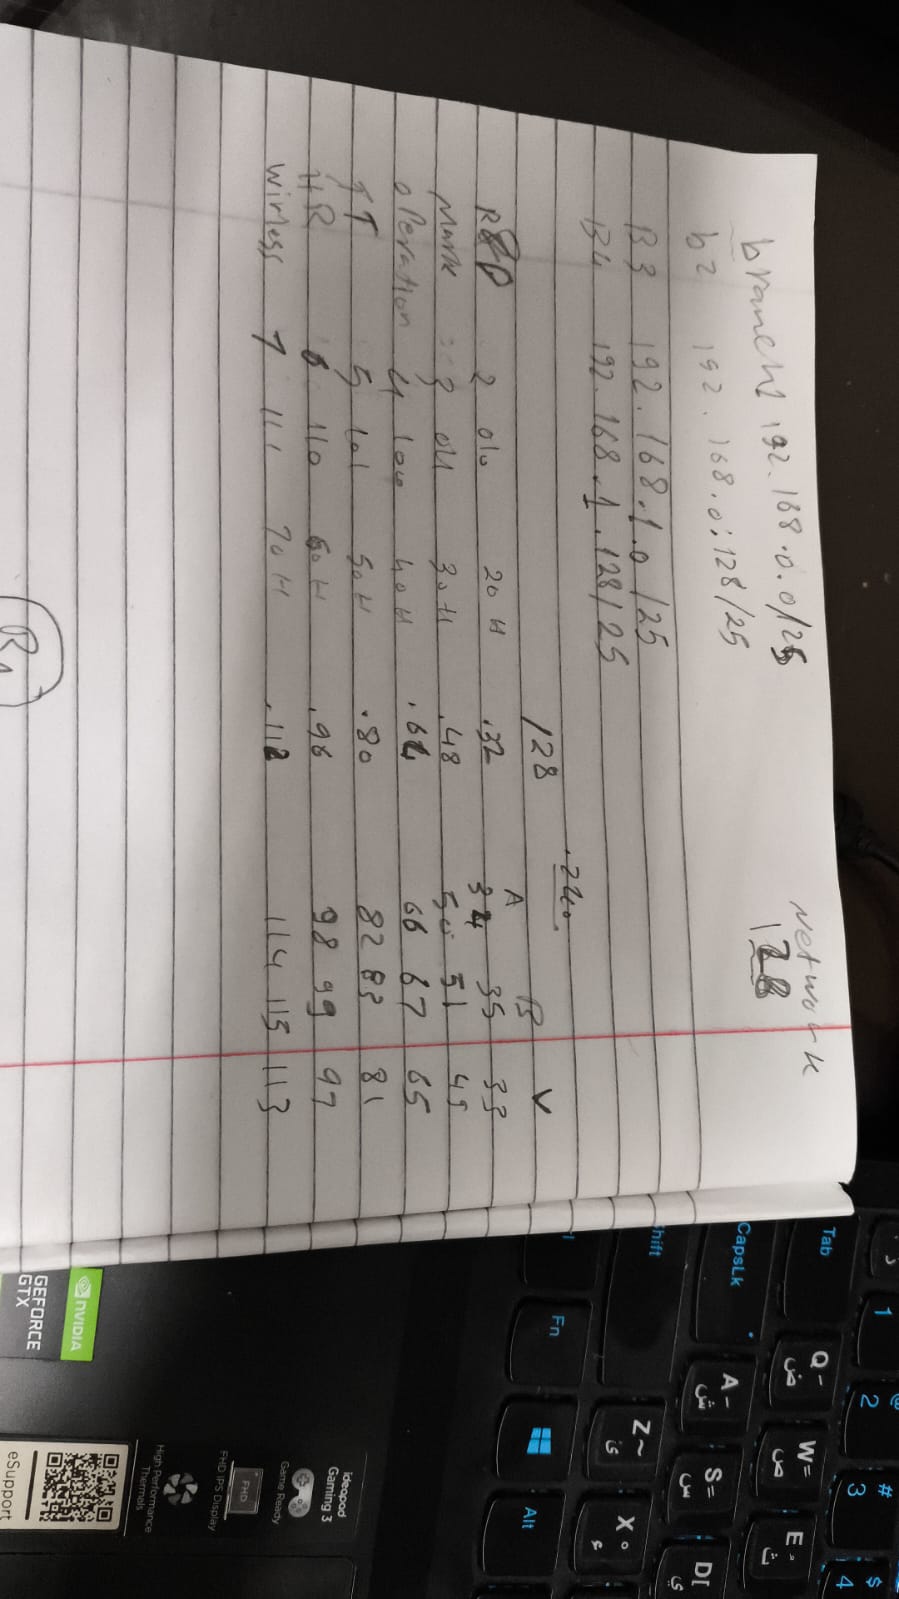 Network
branch1 192.168.0.0/25
b2 192.168.0.128/25
B3 192.168.1.0/25
B4 192.168.1.128/25
.240
/28
A B V
R&D 2 010 20 H .32 34 35 33
Mark 3 011 30 H .48 50 51 49
operation 4 100 40 H .64 66 67 65
IT 5 101 50 H .80 82 83 81
HR 6 110 60 H .96 98 99 97
wirless 7 111 70 H .112 114 115 113
R1
1 2 # 3 $ 4
Tab Q ض W ص E ث
CapsLk A ش S س D ي
Shift Z ئ X ء
Fn Alt
ideapad
Gaming 3
Game Ready
FHD
FHD IPS Display
High Performance
Thermals
NVIDIA
GEFORCE
GTX
eSupport